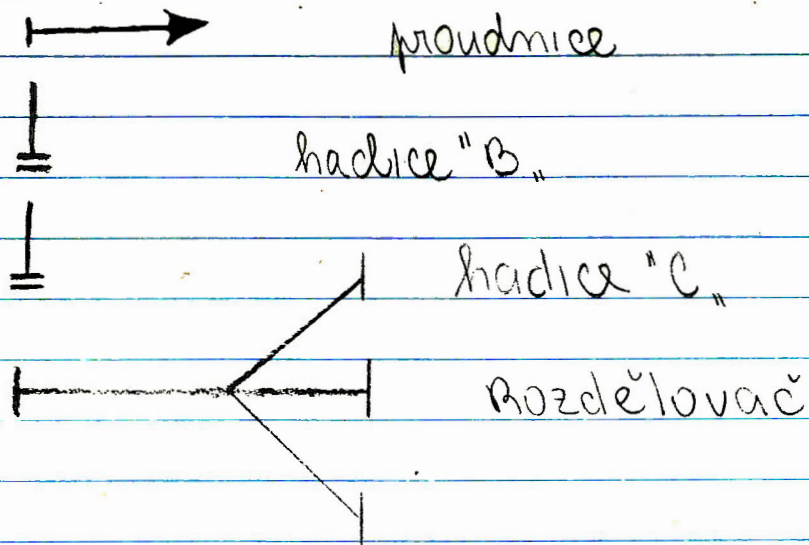 proudnice
hadice "B„
hadice "C„
Rozdělovač